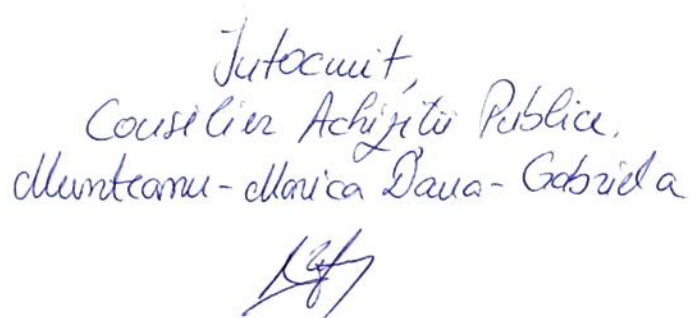 Intocmit,
Consilier Achiziții Publice,
Munteanu-Marica Dana-Gabriela